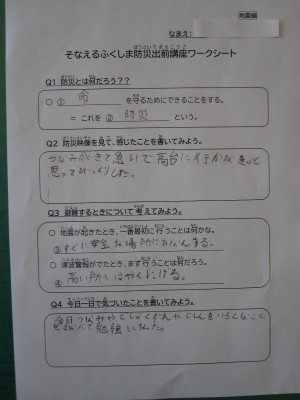 地震編
なまえ：
そなえるふくしま防災出前講座ワークシート
Q1 防災とは何だろう？？
○ ① 命 を守るためにできることをする。
＝ これを ② 防災 という。
Q2 防災映像を見て、感じたことを書いてみよう。
つなみがきて急いで高台に行かな
思ってびっくりした。
Q3 避難するときについて考えてみよう。
○ 地震が起きたとき、一番最初に行うことは何かな。
③ すぐに安全な場所にひなんする。
○ 津波警報がでたとき、まず行うことは何だろう。
④ 高い所へはやくにげる。
Q4 今日一日で気づいたことを書いてみよう。
今日つなみや じしんをいろんなこと
勉強になった。